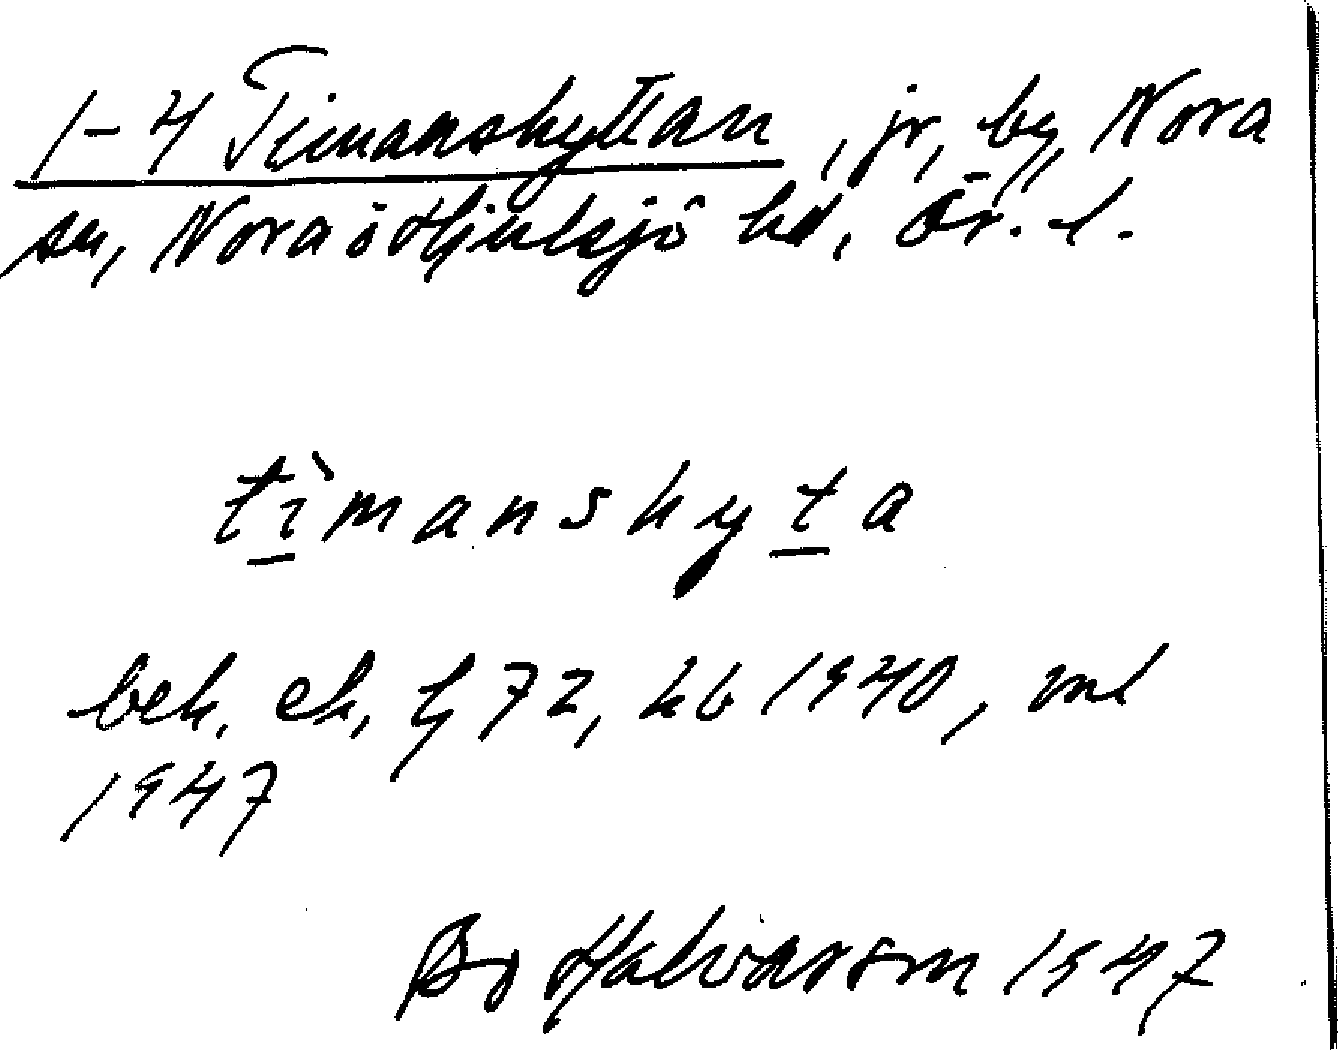 1-4 Timanshyttan, jr, by, Nora
sn, Nora o Hjulsjö hd, Ör. l.
tìmanshyta
bek. ek, f 72, kb 1940, ml
1947
Bo Halvarson 1947